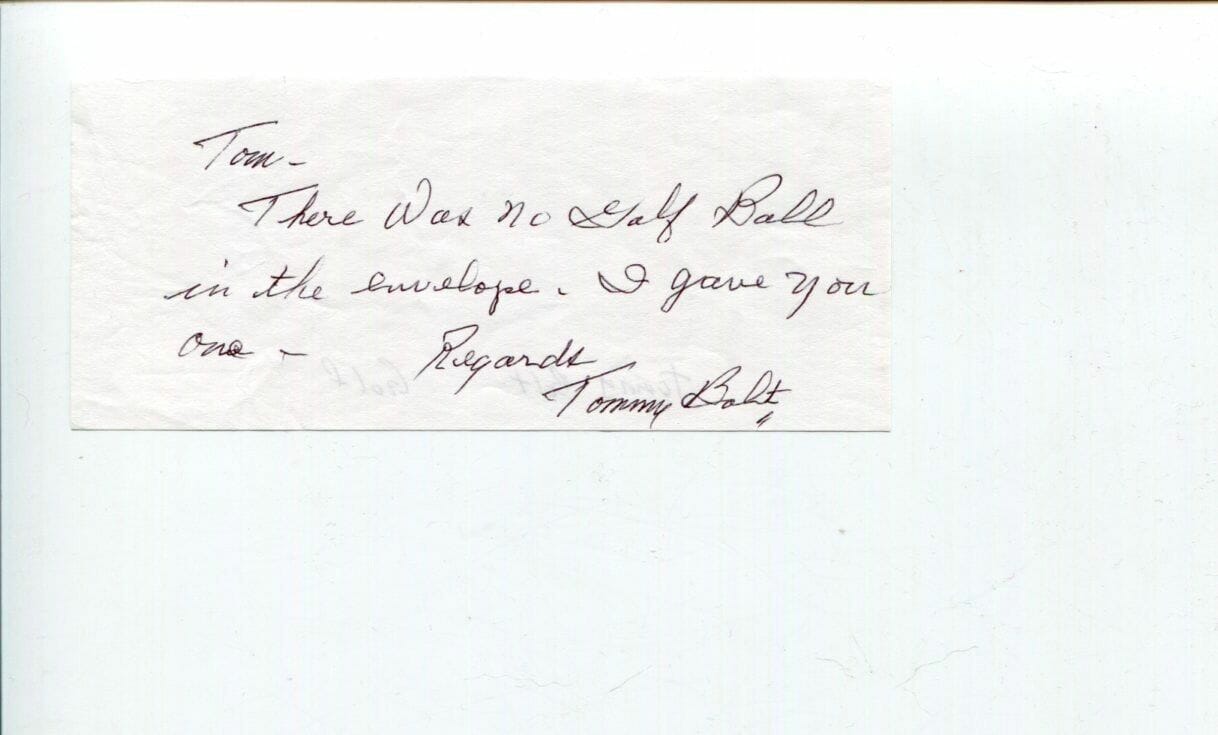 Tom -
There Was no Golf Ball
in the envelope. I gave you
one - Regards
Tommy Bolt